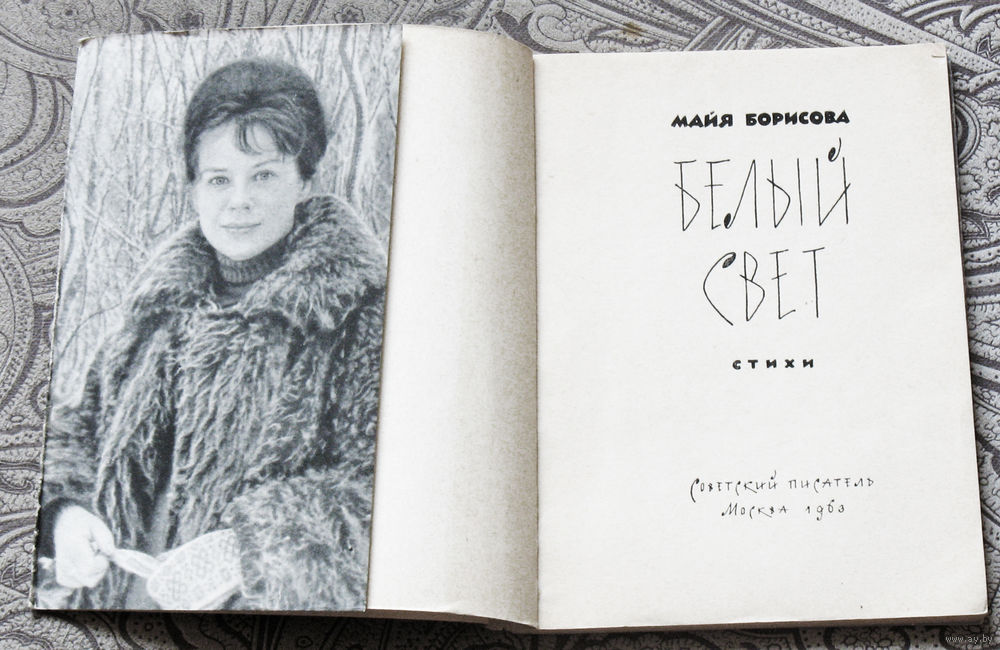 МАЙЯ БОРИСОВА
БЕЛЫЙ
СВЕТ
СТИХИ
СОВЕТСКИЙ ПИСАТЕЛЬ
МОСКВА 1963
www.ay.by